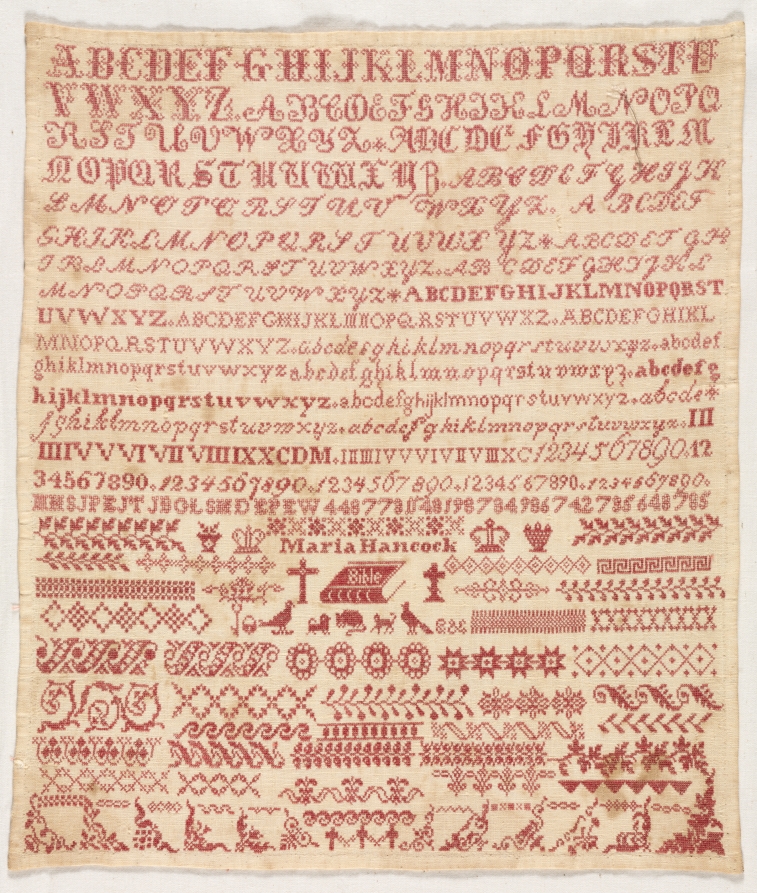 ABCDEFGHIJKLMNOPQRSTU
VWXYZ.ABCDEFGHIJKLMNOPQ
RSTUVWXYZ*ABCDEFGHIJKLM
NOPQRSTUVWXYZ.ABCDEFGHIJK
LMNOPQRSTUV WXYZ. ABCDEF
GHIJKLMNOPQRSTUVWXYZ*ABCDEFGH
IJKLMNOPQRSTUVWXYZ.ABCDEFGHIJKL
MNOPQRSTUVWXYZ*ABCDEFGHIJKLMNOPQRST
UVWXYZ.ABCDEFGHIJKLMNOPQRSTUVWXZ.ABCDEFGHIKL
MNOPQRSTUVWXYZ.abcdefghiklmnopqrstuvwxyz.abcdef
ghiklmnopqrstuvwxyzabcdefghiklmnopqrstuvwxyz.abcdefg
hijklmnopqrstuvwxyz.abcdefghijklmnopqrstuvwxyz.abcde*
fghiklmnopqrstuvwxyz.abcdefghiklmnopqrstuvwxyz.III
1234567890.12
34567890.1234567890.1234567890.1234567890.1234567890.
Maria Hancock
Bible